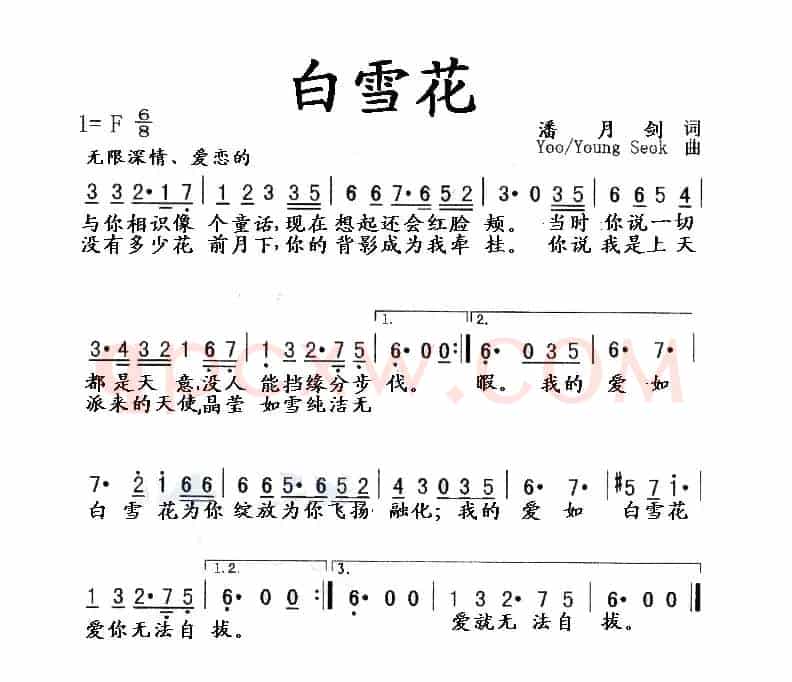 白雪花
1= F 6/8
潘 月 剑 词
Yoo/Young Seok 曲
无限深情、爱恋的
3 3 2· 1 7 | 1 2 3 3 5 | 6 6 7· 6 5 2 | 3· 0 3 5 | 6 6 5 4
与你相识像 个童话,现在 想起还会红脸 颊。 当时 你说一切
没有多少花 前月下,你的 背影成为我牵 挂。 你说 我是上天
1. 2.
3· 4 3 2 1 6 7 | 1 3 2· 7 5 | 6· 0 0 :‖ 6· 0 3 5 | 6· 7· |
都是天 意,没人 能挡缘分步 伐。 暇。 我的 爱 如
派来的天使,晶莹 如雪纯洁无
7· 2 1 6 6 | 6 6 5· 6 5 2 | 4 3 0 3 5 | 6· 7· | #5 7 1· |
白 雪 花为你 绽放为你飞扬 融化; 我的 爱 如 白雪花
1.2. 3.
1 3 2· 7 5 | 6· 0 0 :‖ 6· 0 0 | 1 3 2· 7 5 | 6· 0 0 ‖
爱你无法自 拔。 爱就无 法自 拔。